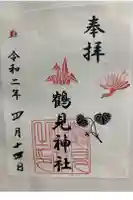 奉拝
鶴見神社
令和二年四月十四日